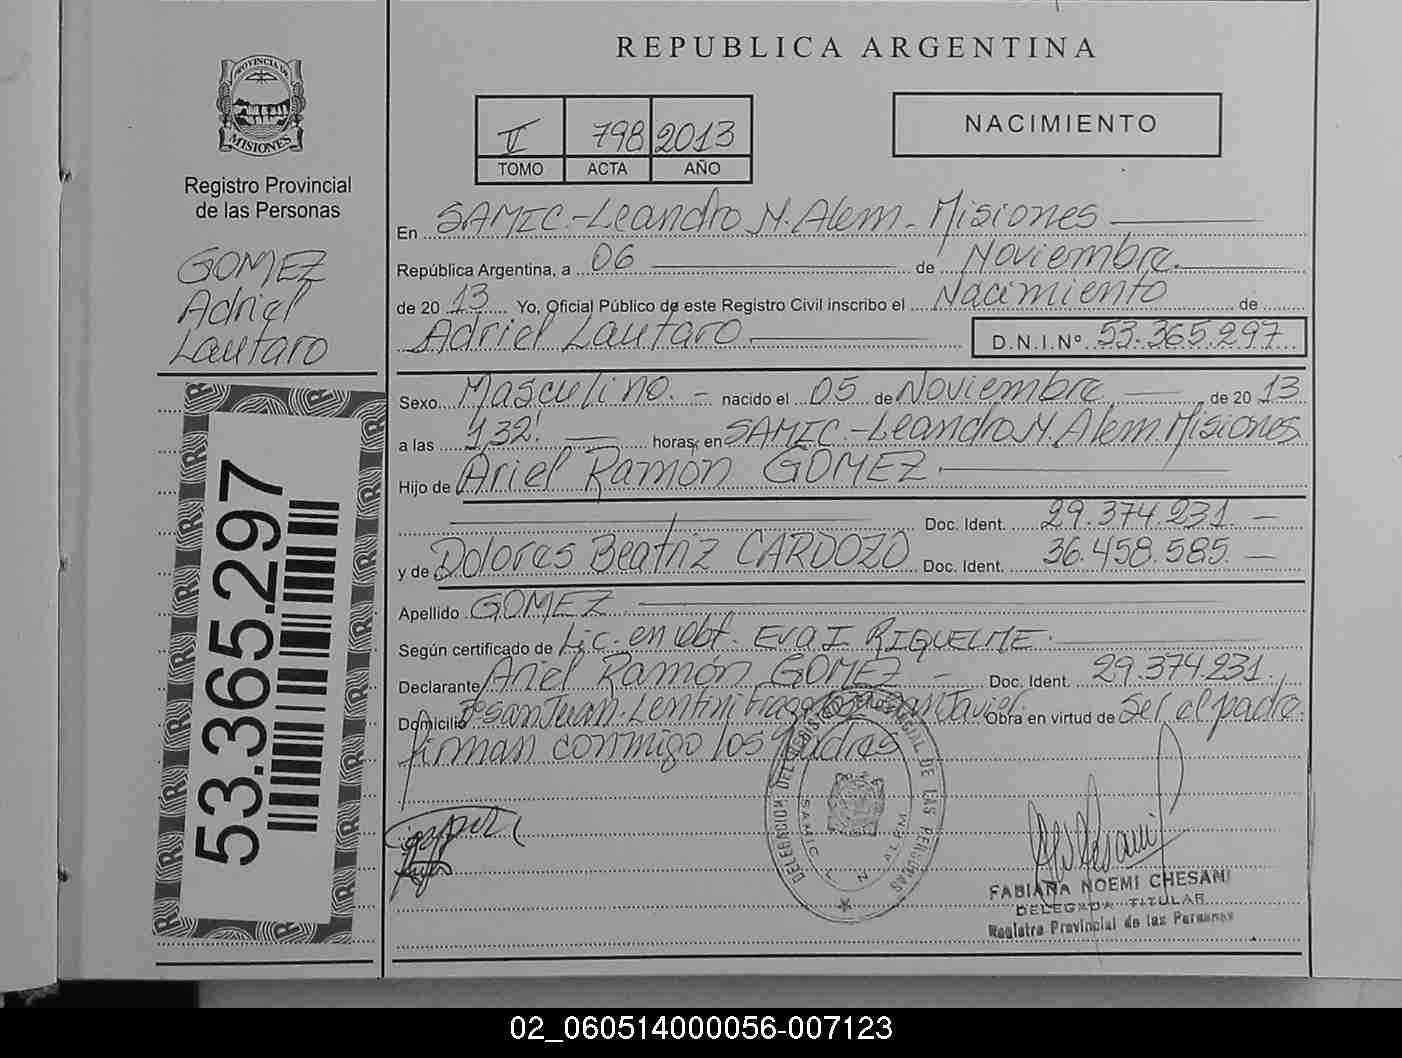 PROVINCIA DE
MISIONES
Registro Provincial
de las Personas
GOMEZ
Adriel
Lautaro
53.365.297
REPUBLICA ARGENTINA
II 798 2013
TOMO ACTA AÑO
NACIMIENTO
En SAMIC-Leandro N. Alem - Misiones
República Argentina, a 06 de Noviembre.
de 20 13 Yo, Oficial Público de este Registro Civil inscribo el Nacimiento de
Adriel Lautaro D.N.I.Nº 53.365.297
Sexo Masculino. - nacido el 05 de Noviembre de 20 13
a las horas, en SAMIC.-Leandro N. Alem. Misiones
Hijo de Ariel Ramón GOMEZ.
Doc. Ident. 29.374.231. -
y de Dolores Beatriz CARDOZO Doc. Ident. 36.458.585. -
Apellido GOMEZ
Según certificado de Lic. en Obst. Eva I. RIQUELME.
Declarante Ariel Ramón GOMEZ - Doc. Ident. 29.374.231.
Domicilio San Juan. Lentini San Javier. Obra en virtud de ser el padre.
firman conmigo los padres
DELEGACION DEL REGISTRO PROVINCIAL DE LAS PERSONAS
SAMIC L N ALEM
FABIANA NOEMI CHESANI
DELEGADA TITULAR
Registro Provincial de las Personas
02_060514000056-007123